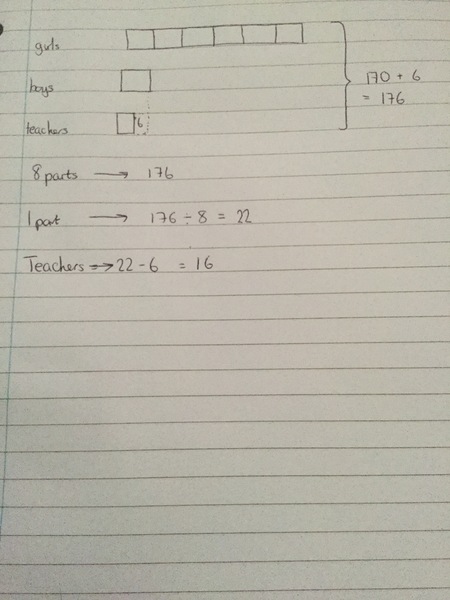 girls
boys
170 + 6
= 176
teachers 6
8 parts → 176
1 part → 176 ÷ 8 = 22
Teachers → 22 - 6 = 16